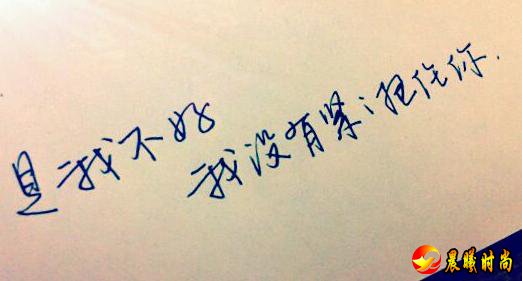 是我不好
我没有紧紧抱住你.
晨曦时尚